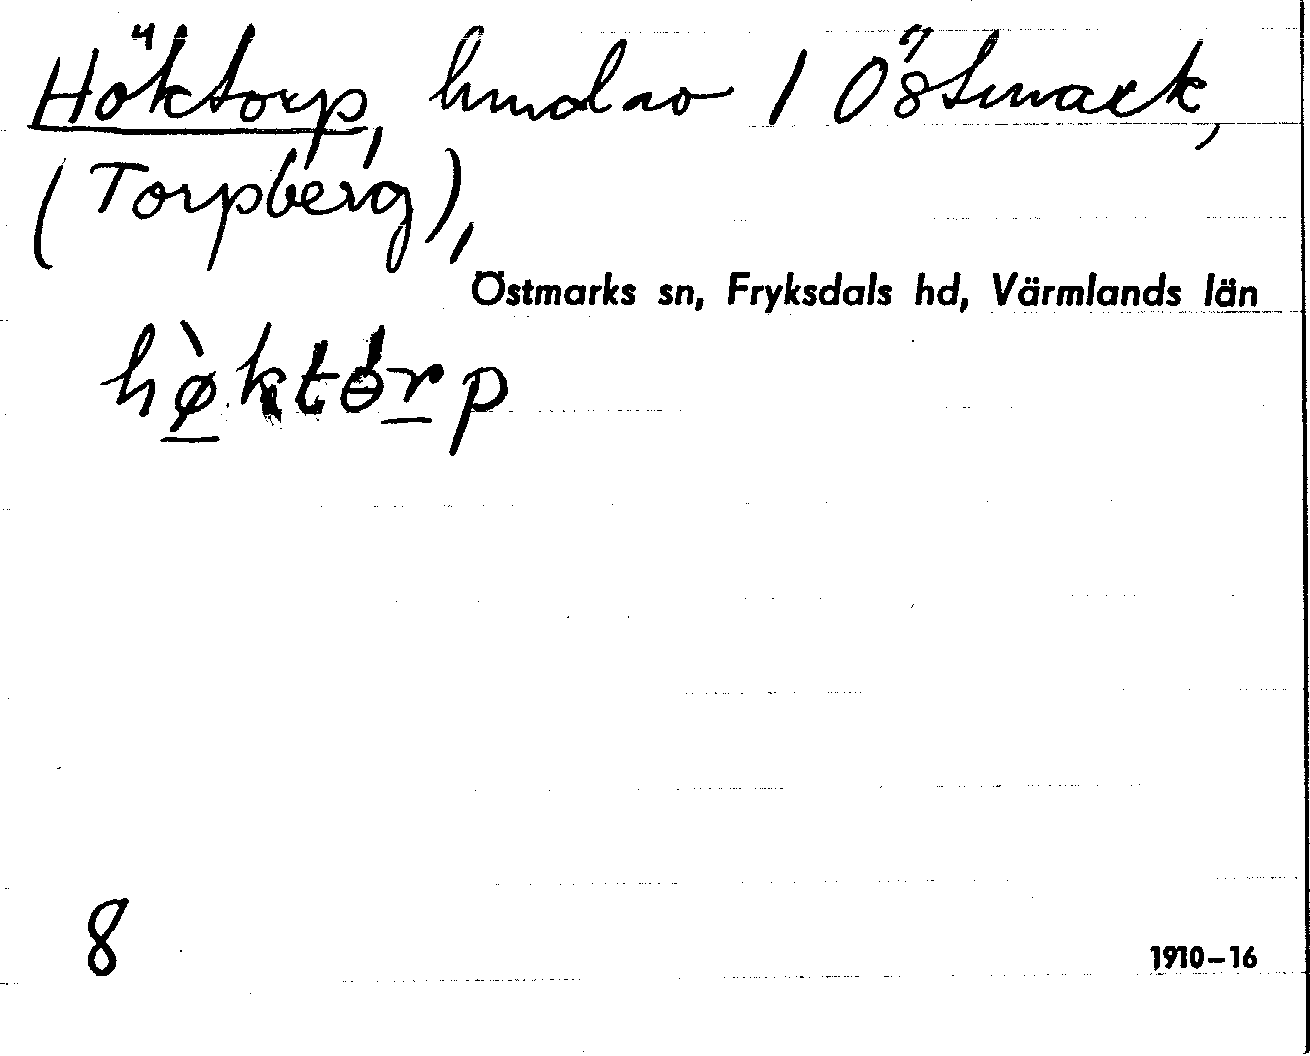 Höktorp, hmdlav / Östmark,
(Torpberg),
Östmarks sn, Fryksdals hd, Värmlands län
hø̀którp
8
1910–16